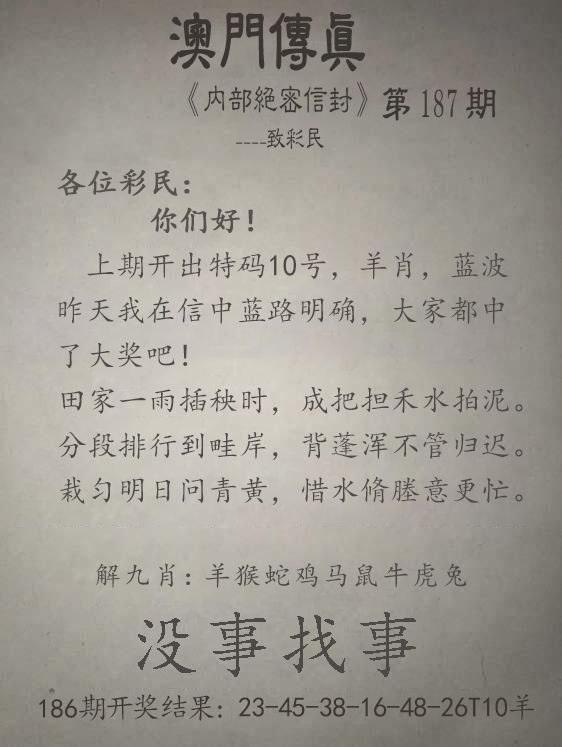 澳門傳眞
《内部絕密信封》第187期
----致彩民
各位彩民：
你们好！
上期开出特码10号，羊肖，蓝波
昨天我在信中蓝路明确，大家都中
了大奖吧！
田家一雨插秧时，成把担禾水拍泥。
分段排行到畦岸，背蓬浑不管归迟。
栽匀明日问青黄，惜水脩塍意更忙。
解九肖：羊猴蛇鸡马鼠牛虎兔
没事找事
186期开奖结果：23-45-38-16-48-26T10羊